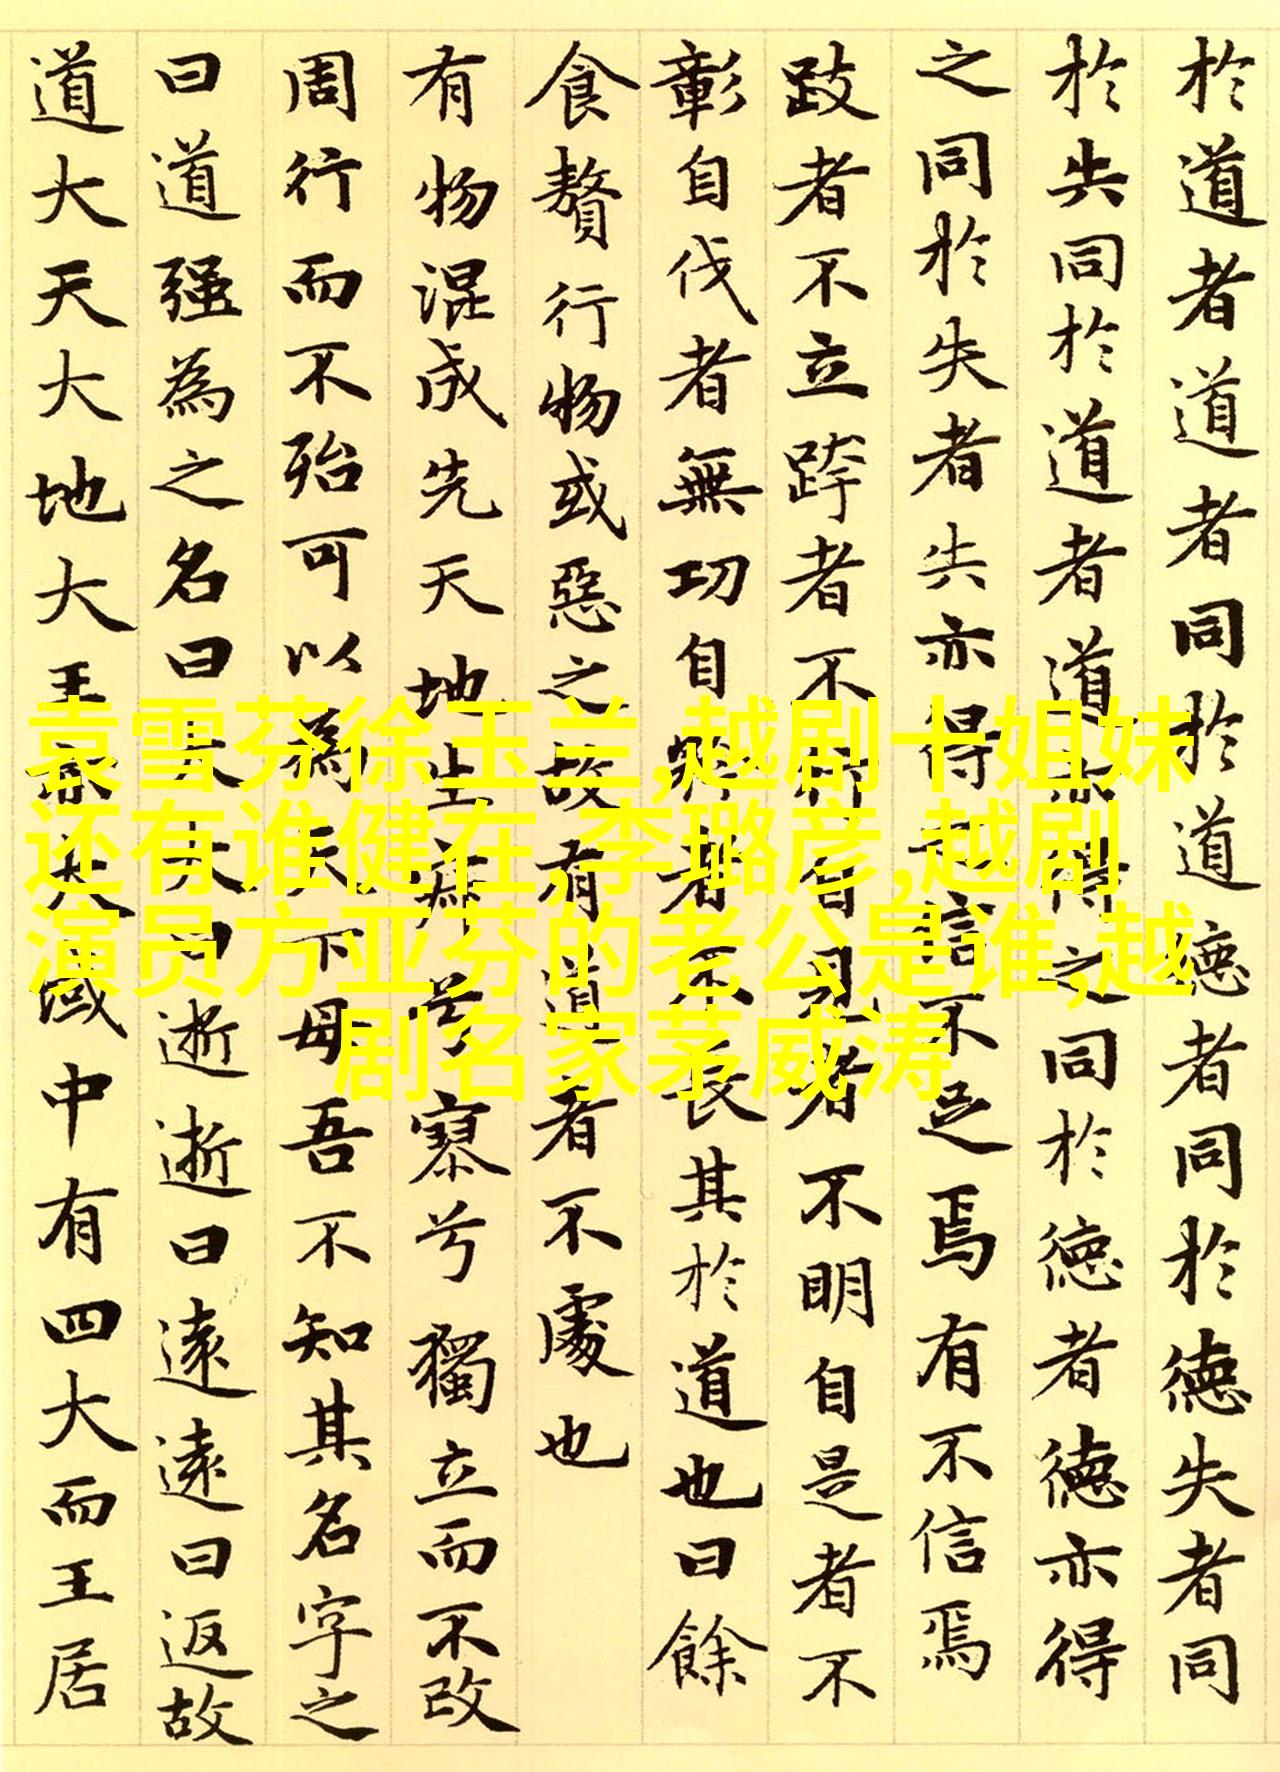 於道者道者同於道德者同於德失者同
於失同於道者道亦得之同於德者德亦得
之同於失者失亦得之信不足焉有不信焉
跂者不立跨者不行自見者不明自是者不
彰自伐者無功自矜者不長其於道也曰餘
食贅行物或惡之故有道者不處也
有物混成先天地生寂兮寥兮獨立而不改
周行而不殆可以為天下母吾不知其名字之
曰道强為之名曰大大曰逝逝曰遠遠曰返故
道大天大地大王亦大域中有四大而王居
袁雪芬徐玉兰,越剧十姐妹
还有谁健在,李璐彦,越剧
演员方亚芬的老公是谁,越
剧名家茅威涛